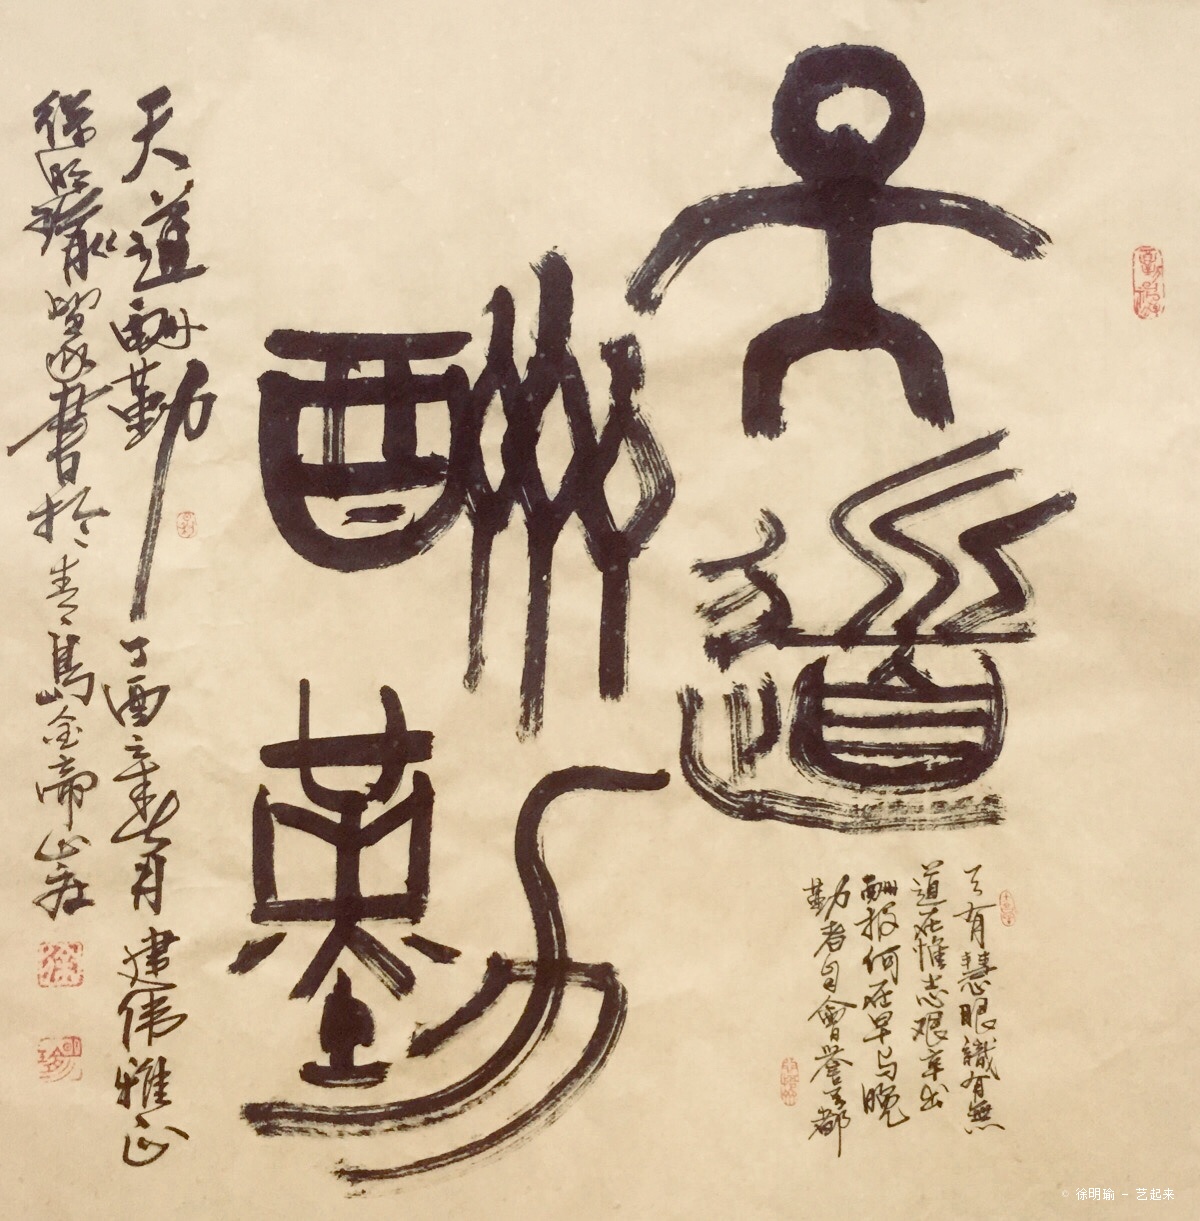 天道
酬勤
天有慧眼識有無
道在惟志艰辛出
酬报何在早与晚
勤者自會誉天都
天道酬勤 丁酉 月 建伟雅正
徐明瑜篆書於青島金帝山庄
© 徐明瑜 - 艺起来